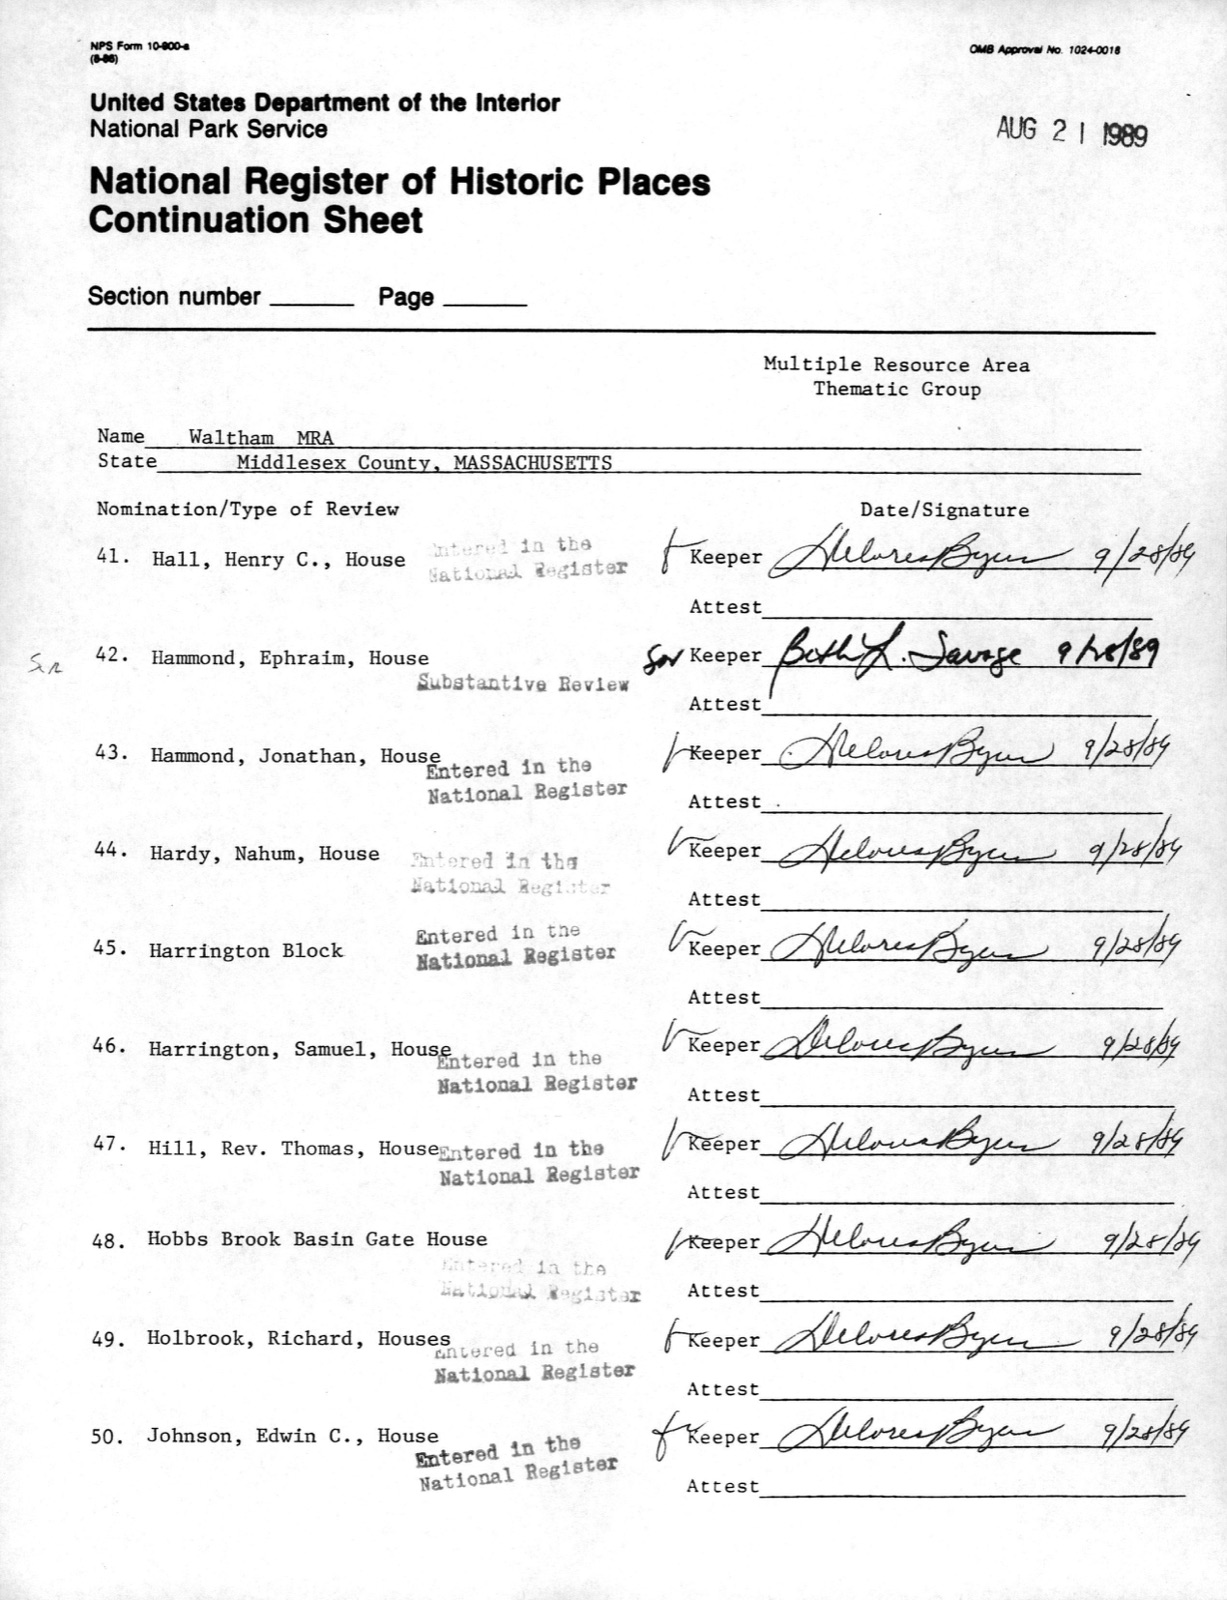 NPS Form 10-900-a
(8-86)
OMB Approval No. 1024-0018
United States Department of the Interior
National Park Service
AUG 21 1989
National Register of Historic Places
Continuation Sheet
Section number ______ Page ______
Multiple Resource Area
Thematic Group
Name Waltham MRA
State Middlesex County, MASSACHUSETTS
Nomination/Type of Review Date/Signature
41. Hall, Henry C., House Entered in the National Register Keeper Delores Byers 9/28/89
Attest
42. Hammond, Ephraim, House Keeper Beth L. Savage 9/28/89
Substantive Review
Attest
43. Hammond, Jonathan, House Keeper Delores Byers 9/28/89
Entered in the
National Register
Attest
44. Hardy, Nahum, House Entered in the National Register Keeper Delores Byers 9/28/89
Attest
45. Harrington Block Entered in the National Register Keeper Delores Byers 9/28/89
Attest
46. Harrington, Samuel, House Keeper Delores Byers 9/28/89
Entered in the
National Register
Attest
47. Hill, Rev. Thomas, House Entered in the National Register Keeper Delores Byers 9/28/89
Attest
48. Hobbs Brook Basin Gate House Keeper Delores Byers 9/28/89
Entered in the
National Register
Attest
49. Holbrook, Richard, Houses Keeper Delores Byers 9/28/89
Entered in the
National Register
Attest
50. Johnson, Edwin C., House Keeper Delores Byers 9/28/89
Entered in the
National Register
Attest